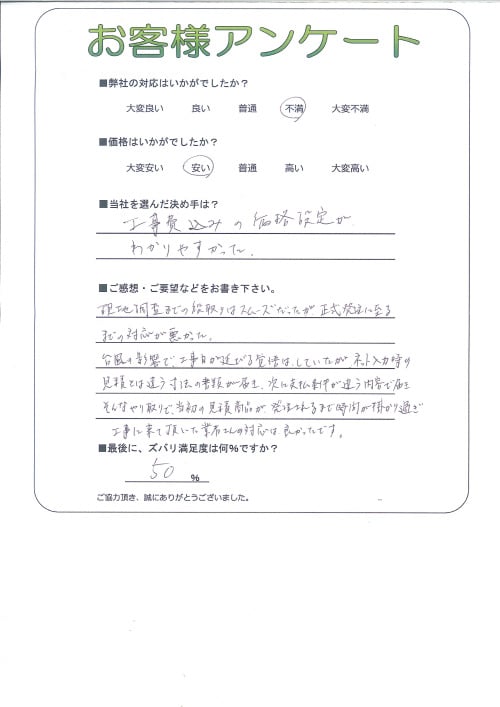 お客様アンケート
■弊社の対応はいかがでしたか？
大変良い 良い 普通 不満 大変不満
■価格はいかがでしたか？
大変安い 安い 普通 高い 大変高い
■当社を選んだ決め手は？
工事費込みの価格設定が
わかりやすかった。
■ご感想・ご要望などをお書き下さい。
現地調査までの段取りはスムーズだったが正式発注に至る
までの対応が悪かった。
台風の影響で、工事日が延びる覚悟はしていたが ネット入力時の
見積とは違う寸法の書類が届き、次に支払条件が違う内容で届き
そんなやり取りで、当初の見積商品が発注されるまで時間が掛かり過ぎ
工事に来て頂いた業者さんの対応は良かったです。
■最後に、ズバリ満足度は何％ですか？
50 ％
ご協力頂き、誠にありがとうございました。